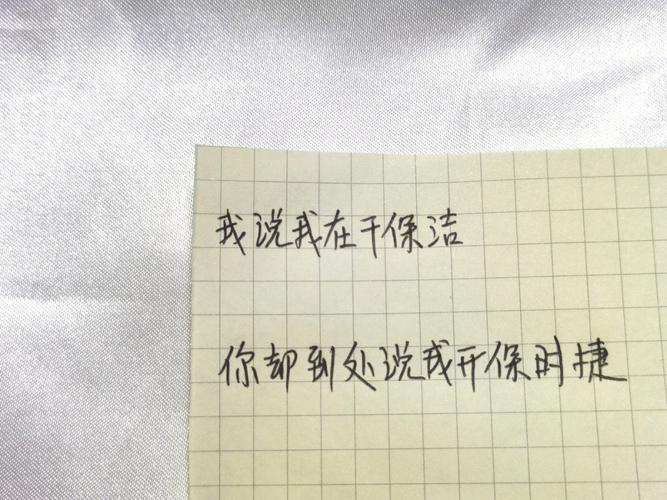 我说我在干保洁
你却到处说我开保时捷